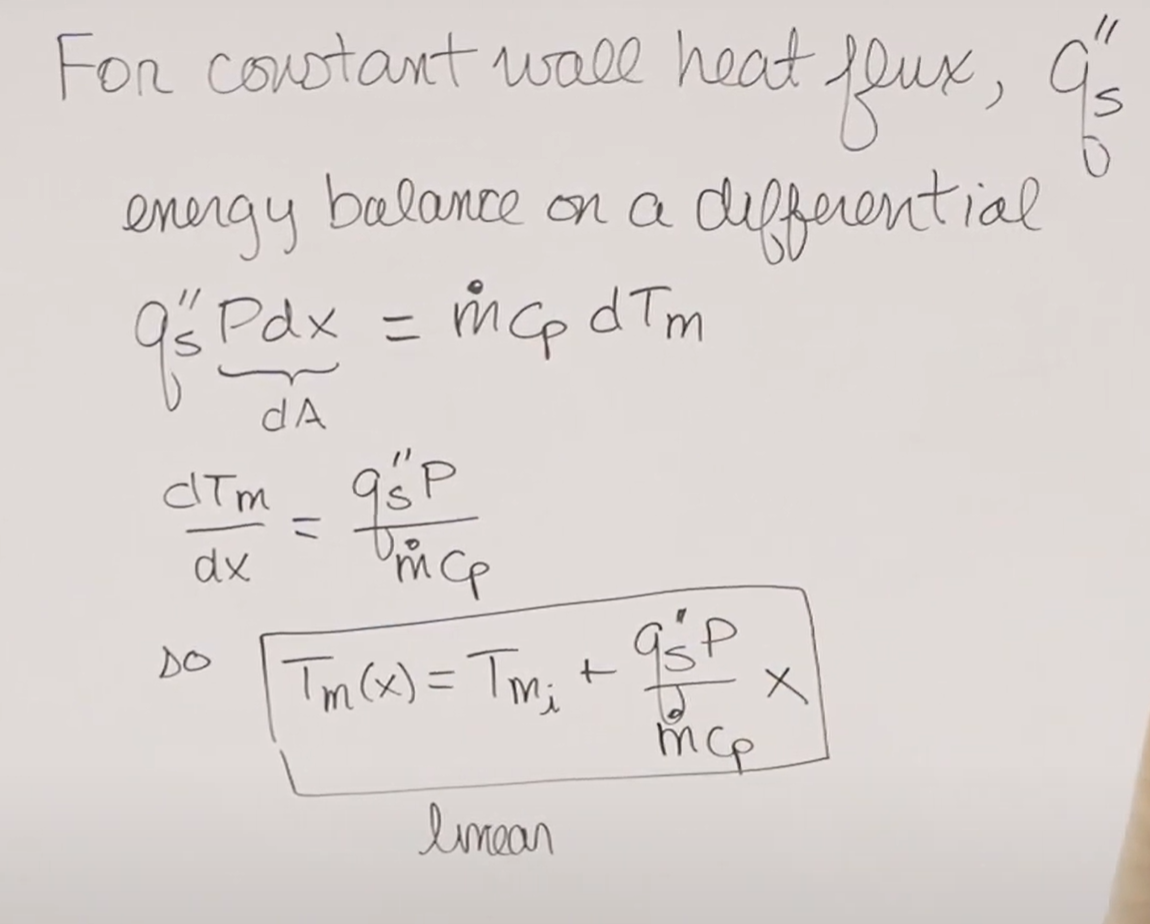 For constant wall heat flux, q''s
energy balance on a differential
q''s Pdx = ṁ Cp dTm
dA
dTm/dx = q''s P / ṁ Cp
so Tm(x) = Tmi + q''s P / ṁ Cp x
linear